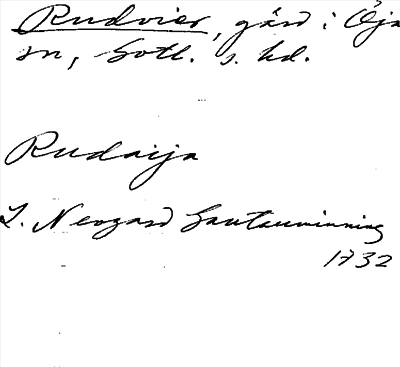 Rudvier, gård i Öja
sn, Gotl. s. hd.
Rudaija
L. Neogard Gautauminning
1732